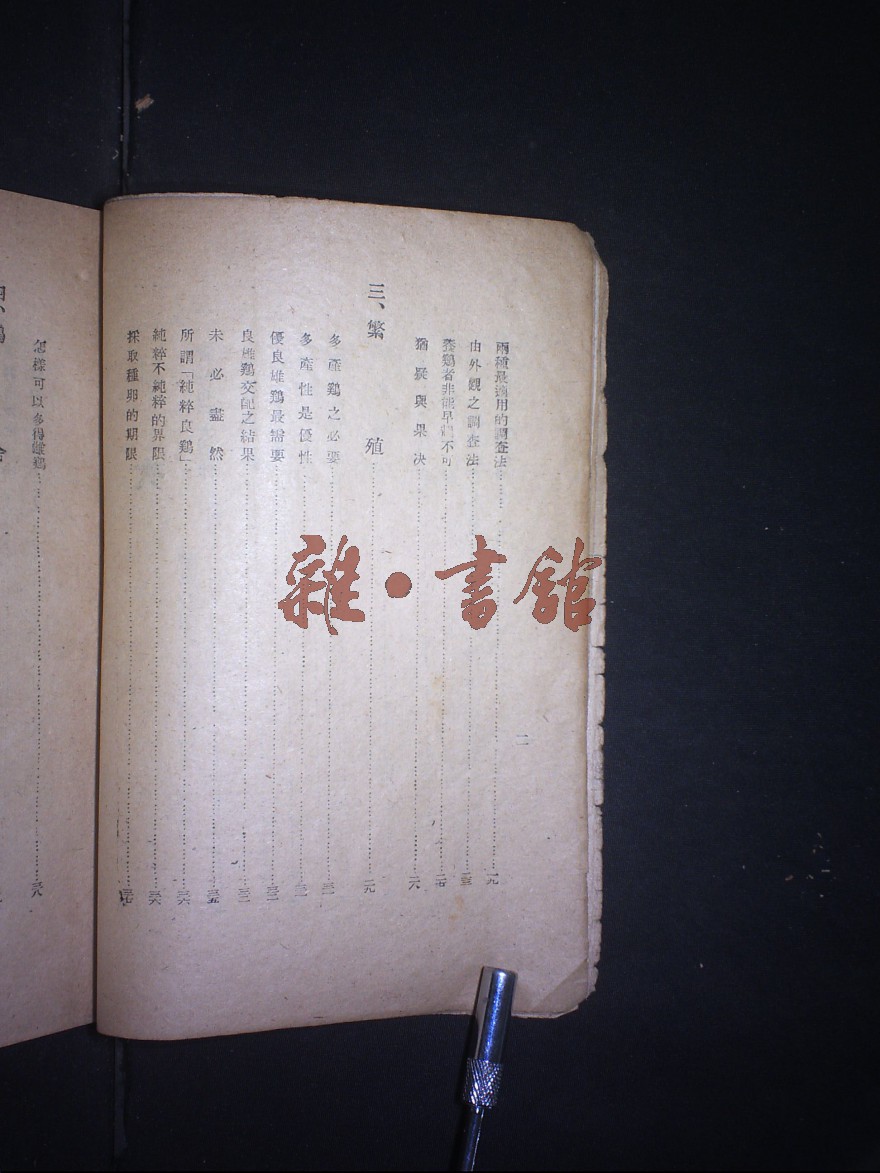 二
兩種最適用的調查法……一九
由外觀之調查法……二三
養鷄者非能早起不可……二七
猶疑與果決……
三、繁殖……
多產鷄之必要……
多產性是優性……
優良雄鷄最需要……三二
良雄鷄交配之結果……三三
未必盡然……三五
所謂「純粹良鷄」……三六
純粹不純粹的界限……三六
採取種卵的期限……三七
怎樣可以多得雌鷄……三八
雜·書館